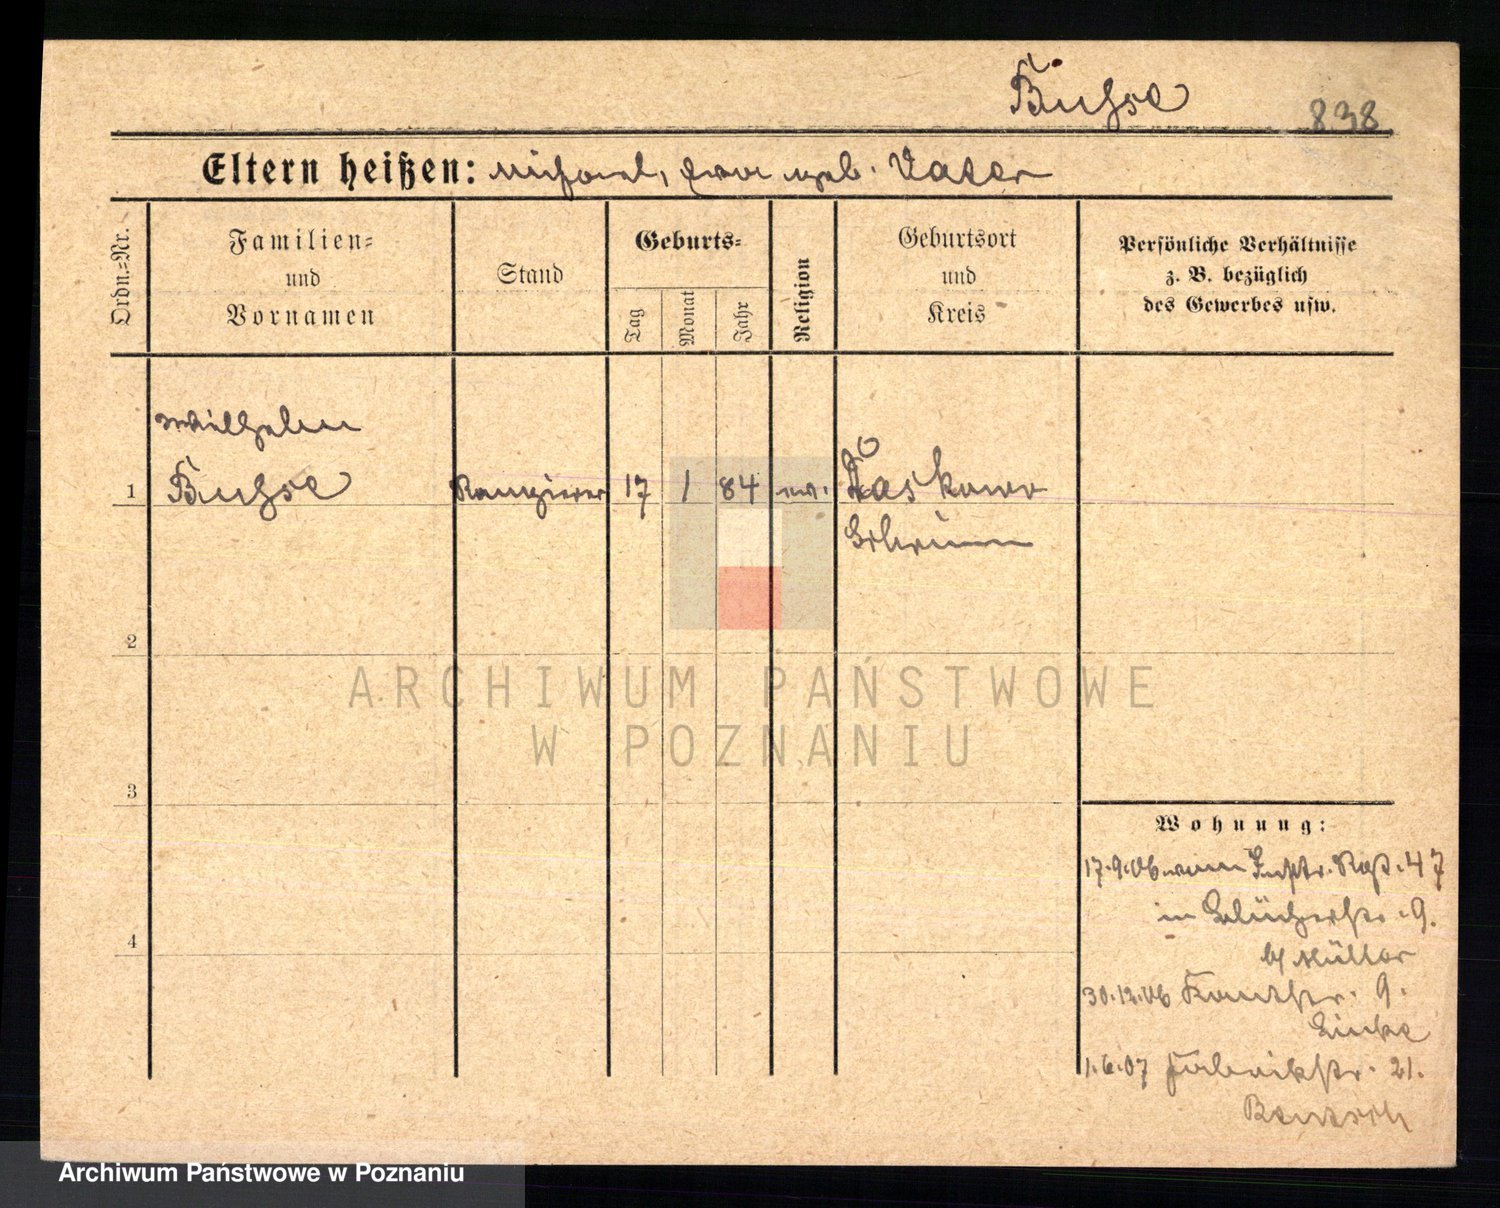 Buchse
838
Eltern heißen: Michael, Eva geb. Vater
Ordn.=Nr.
Familien=
und
Vornamen
Stand
Geburts=
Tag
Monat
Jahr
Religion
Geburtsort
und
Kreis
Persönliche Verhältnisse
z. B. bezüglich
des Gewerbes usw.
Wilhelm
1 Buchse Rangierer 17 1 84 ev. Xaskowo
Schrimm
2
ARCHIWUM PAŃSTWOWE
W POZNANIU
3
Wohnung:
17.9.06 vom Inftr. Rgt. 47
in Blücherstr. 9.
b/ Müller
4
30.12.06 Kantstr. 9.
Linke
1.6.07 Fabrikstr. 21.
Bentsch
Archiwum Państwowe w Poznaniu